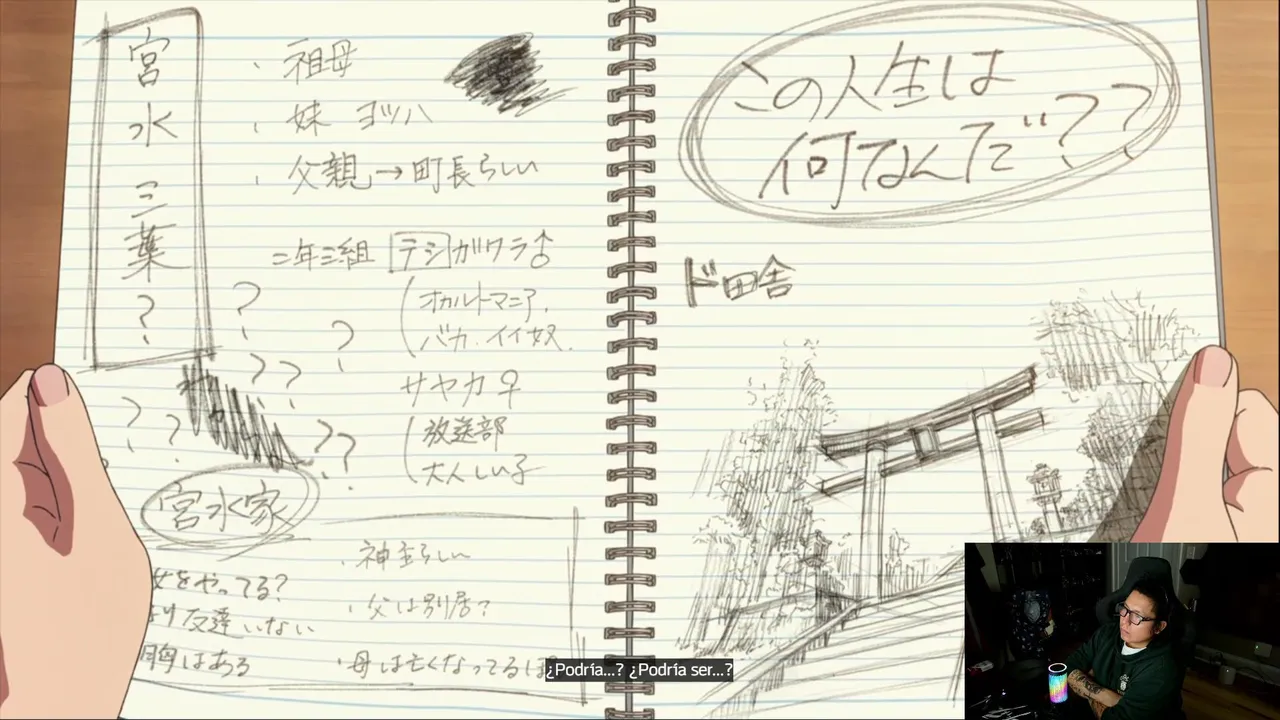 宮水 三葉?
・祖母
・妹 ヨツハ
・父親→町長らしい
二年三組 テシガワラ♂
オカルトマニア.
バカ.イイ奴.
サヤカ♀
放送部
大人しい子
?
?
??
??
??
宮水家
・神主らしい
・父は別居?
・母は亡くなってるっぽ
女をやってる?
り友達いない
胸はある
この人生は
何なんだ??
ド田舎
¿Podría...? ¿Podría ser...?